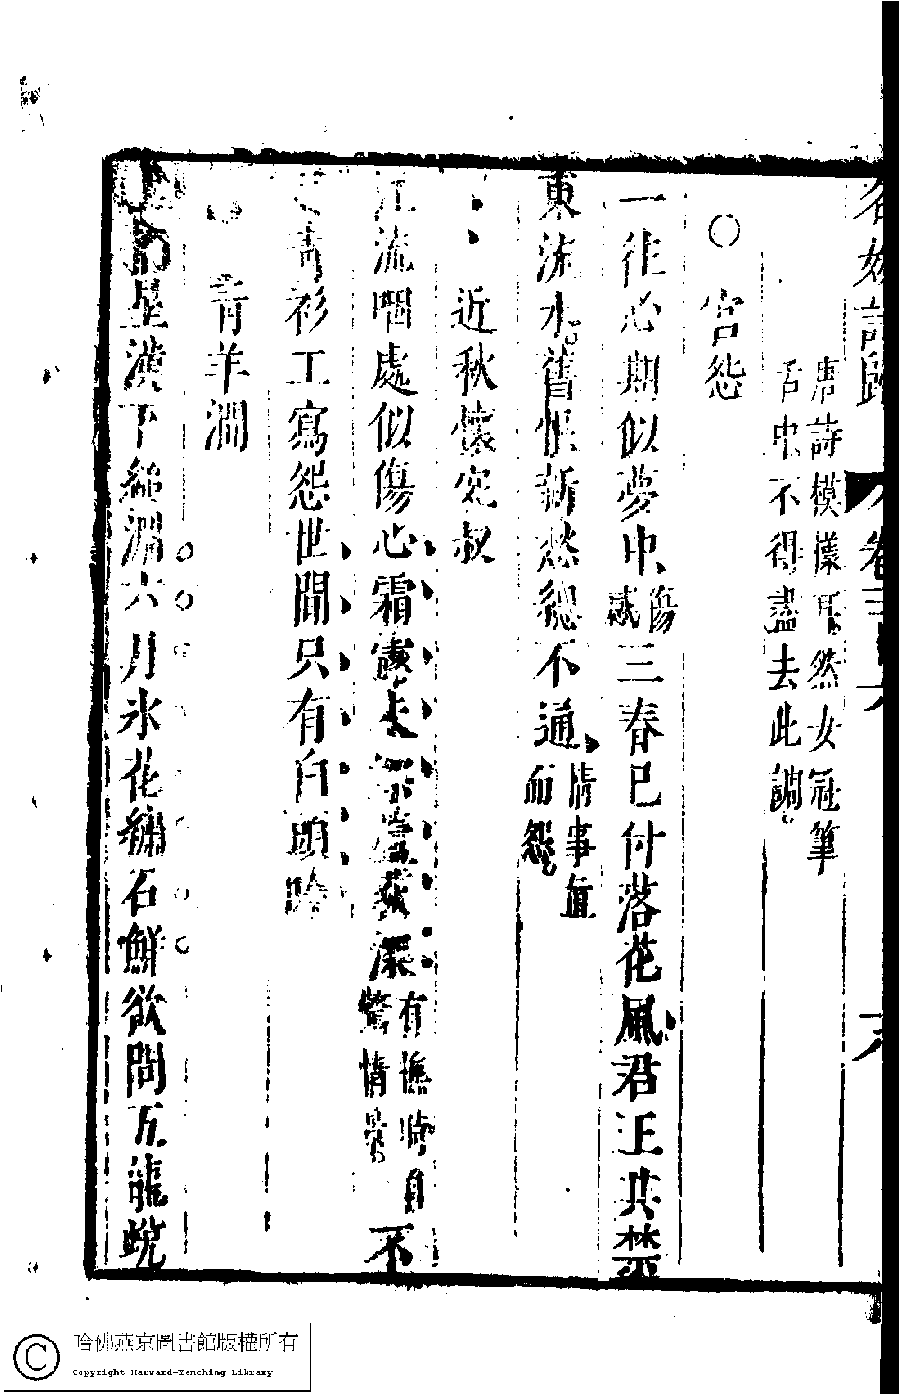 名媛詩歸 卷三十六 六
唐詩模樣耳然女冠筆
舌中不得盡去此調
○宮怨
一往心期似夢中傷感三春已付落花風君王共楚
東流水舊恨新愁總不通情事無而怨
近秋懷宛叔
江流咽處似傷心霜露未深有憮時自驚情景不
青衫工寫怨世間只有白頭吟
青羊澗
星漢下 澗六月氷花繡石鮮欲問五龍蛻
哈佛燕京圖書館版權所有
Copyright Harvard-Yenching Library